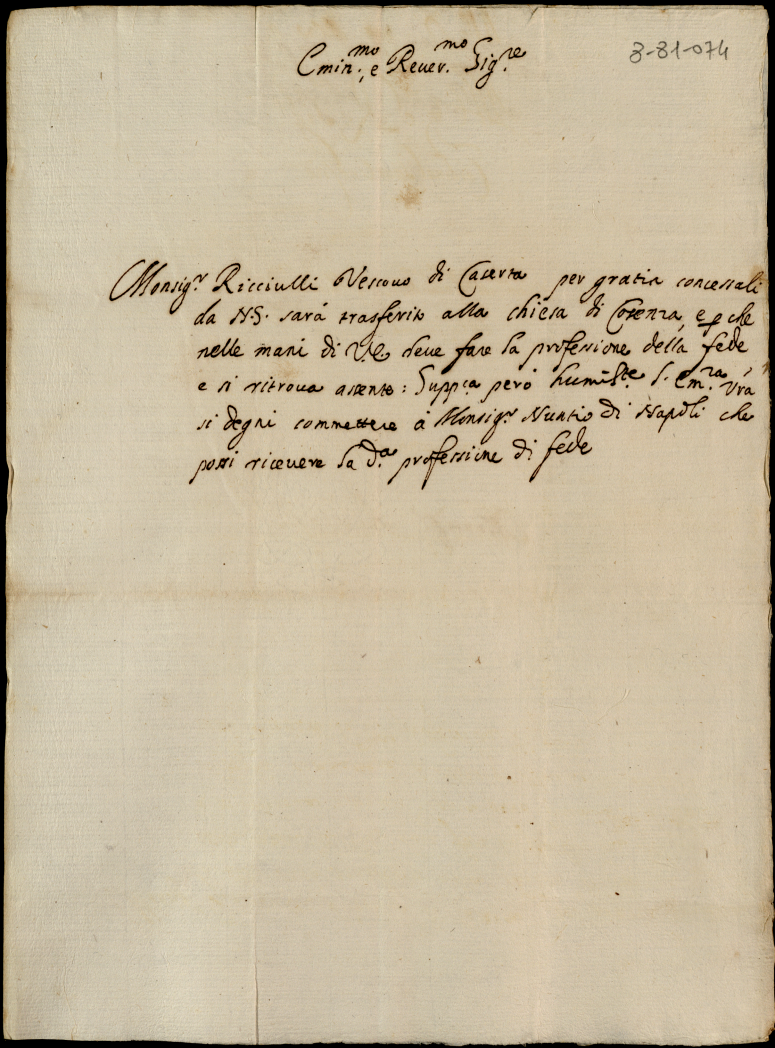 3-81-074
Emin.mo e Reuer.mo Sig.re
Monsig.r Ricciulli Vescouo di Caserta per gratia concessali
da NS. sará trasferito alla chiesa di Cosenza, e p che
nelle mani di V.E. deue fare la professione della fede
e si ritroua assente: Supp.ca peró humilte. l. Em.ra Vrá
si degni commettere á Monsig.r Nuntio di Napoli che
possi riceuere la d.a professione di fede